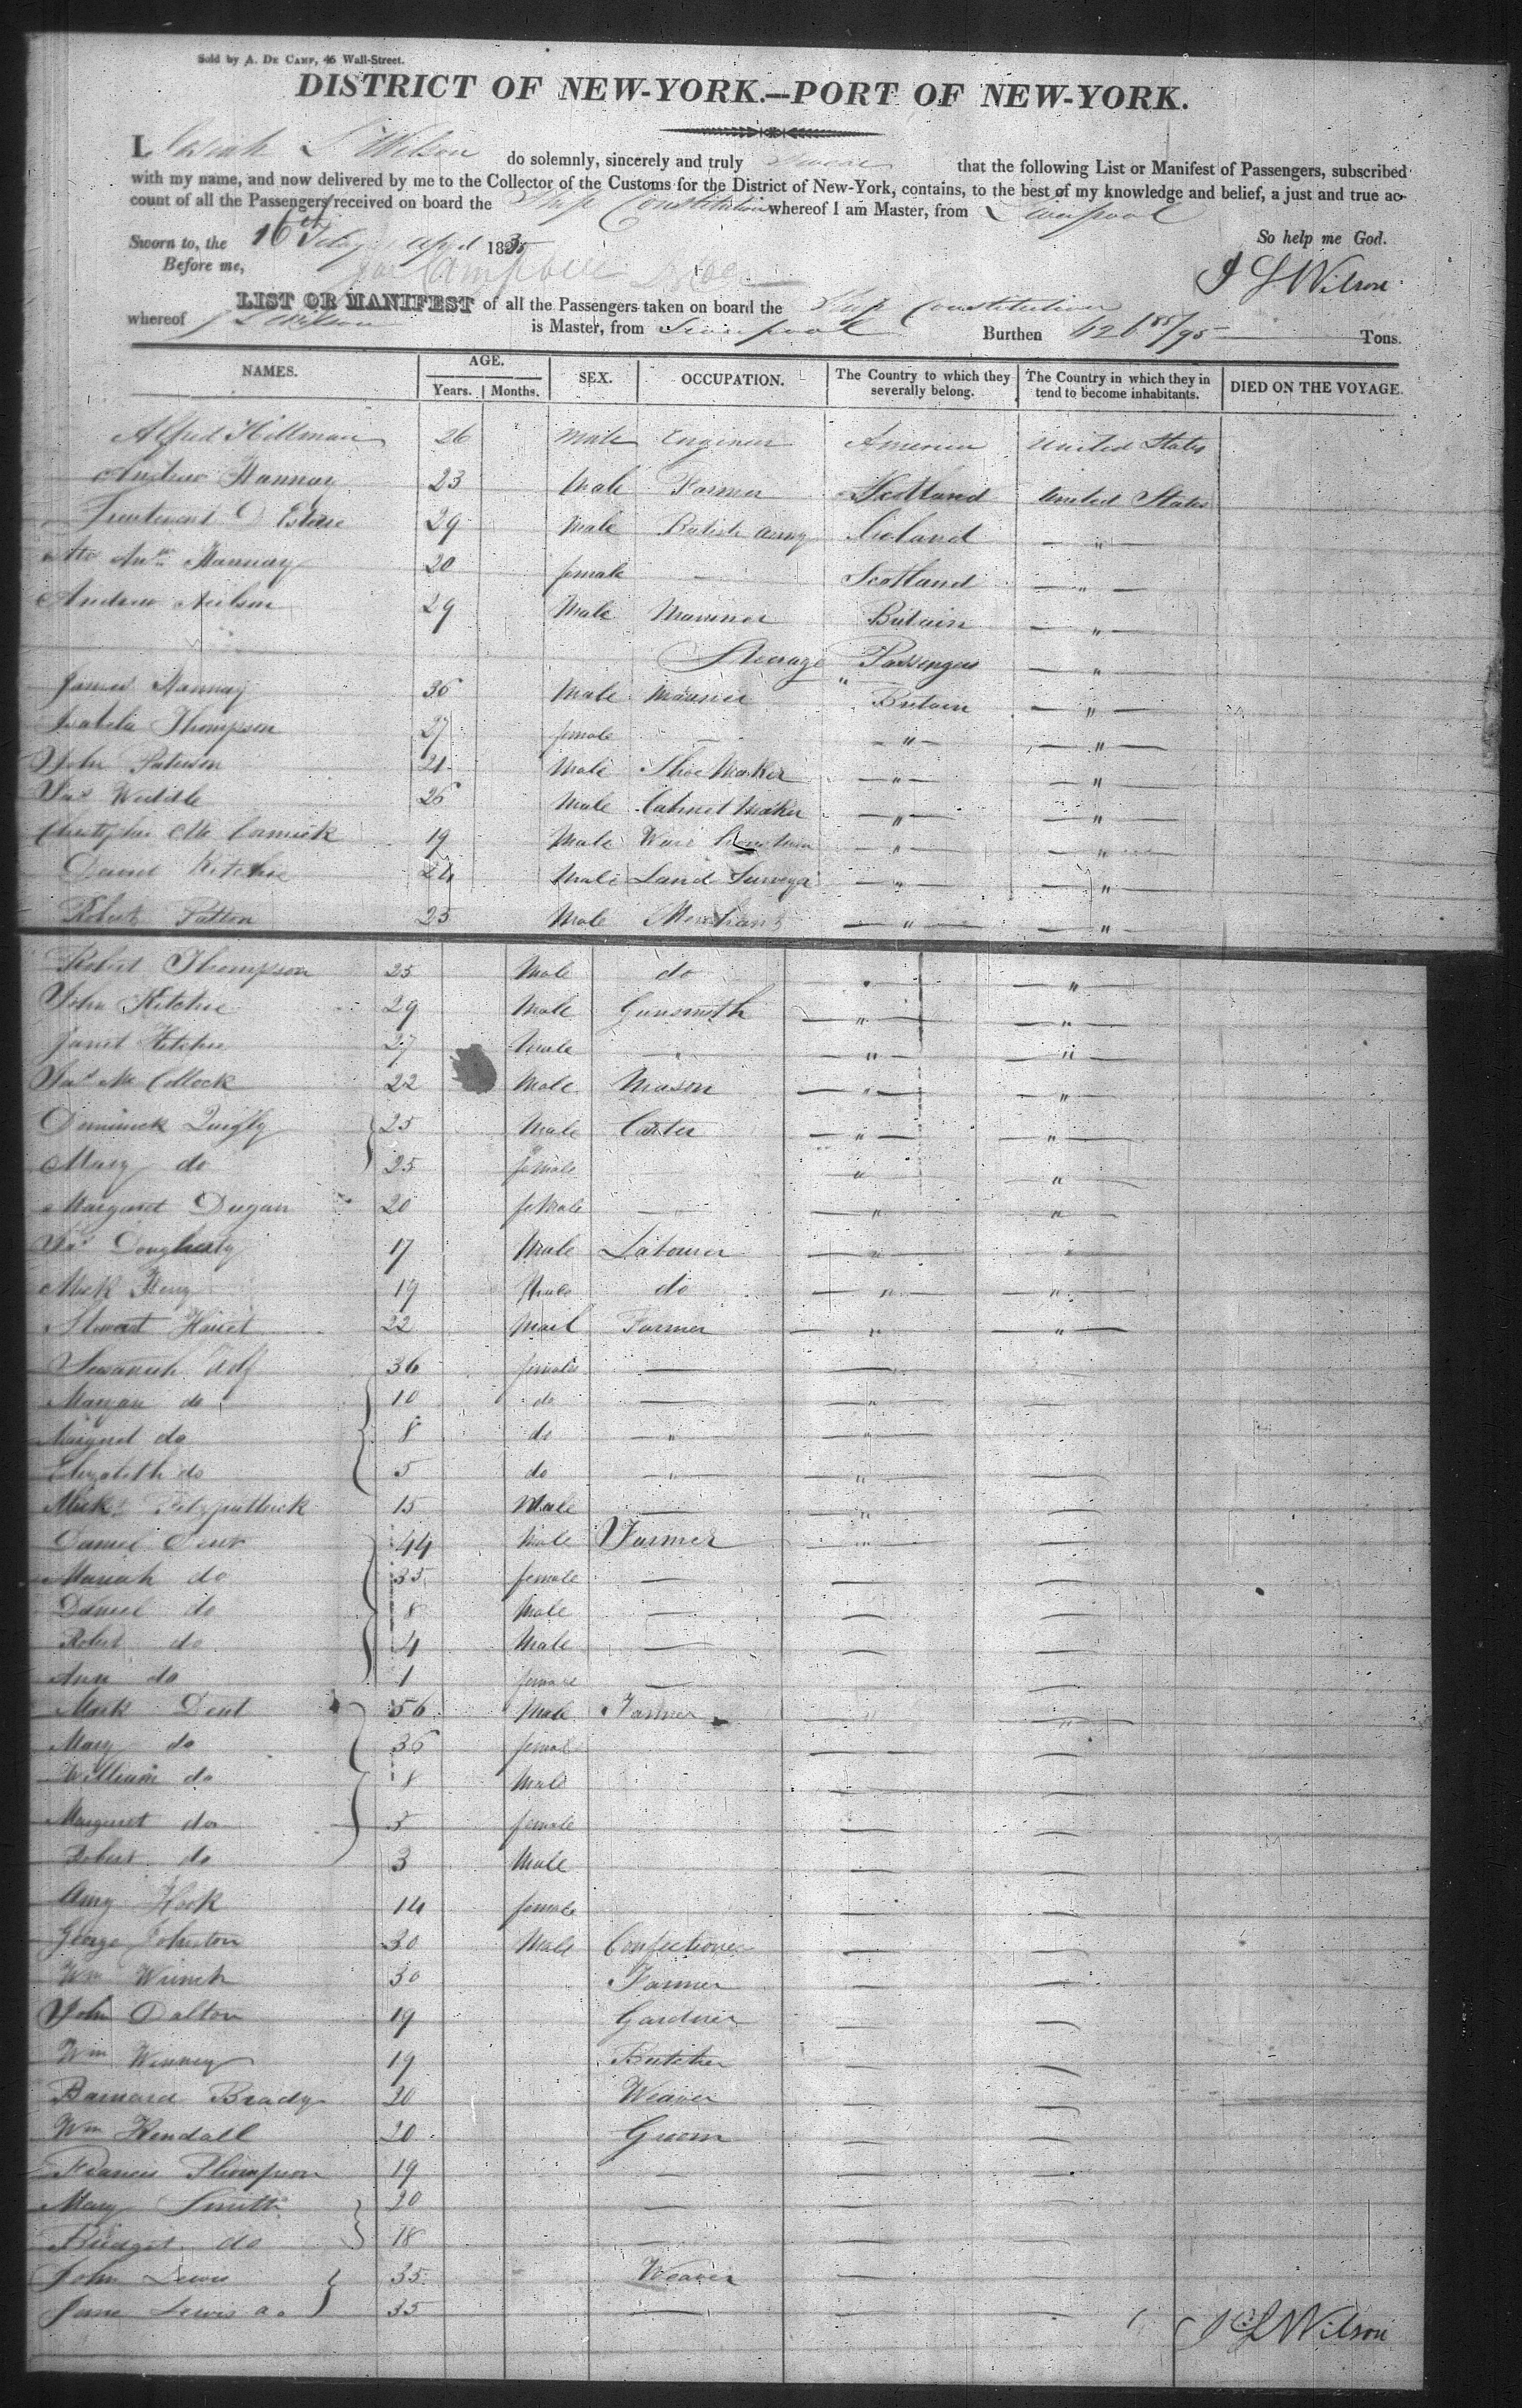 Sold by A. De Camp, 46 Wall-Street.
DISTRICT OF NEW-YORK.—PORT OF NEW-YORK.
I, L Wilson do solemnly, sincerely and truly swear that the following List or Manifest of Passengers, subscribed
with my name, and now delivered by me to the Collector of the Customs for the District of New-York, contains, to the best of my knowledge and belief, a just and true ac-
count of all the Passengers received on board the Ship Constitution whereof I am Master, from Liverpool
Sworn to, the 16th 1835 So help me God.
Before me, J L Wilson
LIST OR MANIFEST of all the Passengers taken on board the Ship Constitution
whereof J L Wilson is Master, from Liverpool Burthen 626 85/95 Tons.
NAMES. AGE. Years. Months. SEX. OCCUPATION. The Country to which they severally belong. The Country in which they in tend to become inhabitants. DIED ON THE VOYAGE.
Alfred Hillman 26 Male Engineer America United States
Andrew Hannay 23 Male Farmer Scotland United States
Lieutenant D 29 Male British Army Ireland — " —
Hannay 20 female — Scotland — " —
Andrew Neilson 29 Male Mariner Britain — " —
Steerage Passengers — " —
James Hannay 36 Male Mariner Britain — " —
Isabella Thompson 27 female — — " — — " —
John Paterson 21 Male Shoe Maker — " — — " —
Jas Weddle 26 Male Cabinet Maker — " — — " —
Christopher Mc Cormick 19 Male — " — — " —
David Ritchie 24 Male Land Surveyor — " — — " —
Robert Patton 25 Male Merchant — " — — " —
Robert Thompson 25 Male do — " — — " —
John Ritchie 29 Male Gunsmith — " — — " —
Janet Ritchie 27 Male — " — — " — — " —
Jas Mc Collock 22 Male Mason — " — — " —
Dominick Quigly 25 Male Carter — " — — " —
Mary do 25 female " "
Margaret Dugan 20 female — " — — " — — " —
Jas Dougherty 17 Male Labourer — " — "
Mick 19 Male do — " — — " —
Stewart 22 Mail Farmer — " — — " —
36 female — —
Maryan do 10 do — — " —
Margret do 8 do — " — — " —
Elizabeth do 5 do — " — — " — —
Mick Fitzpattrick 15 Male — — " — —
Daniel Dent 44 Male Farmer — " — —
Mariah do 35 female — — —
Daniel do 8 Male — — —
Robert do 4 Male — — —
Ann do 1 female — — —
Mark Dent 56 Male Farmer — " — — " —
Mary do 36 female — —
William do 8 Male — —
Margaret do 5 female — —
Robert do 3 Male — —
Amy Hook 14 female — —
George Johnston 30 Male Confectioner — —
Wm 30 Farmer — —
John Dalton 19 Gardner — —
Wm Winney 19 Butcher — —
Barnard Brady 20 Weaver — —
Wm Kendall 20 Groom — —
Francis Thompson 19 — — —
Mary Smith 20 — — —
Bridget do 18 — — —
John Lewis 35 Weaver — —
Jane Lewis 35 — — —
J L Wilson